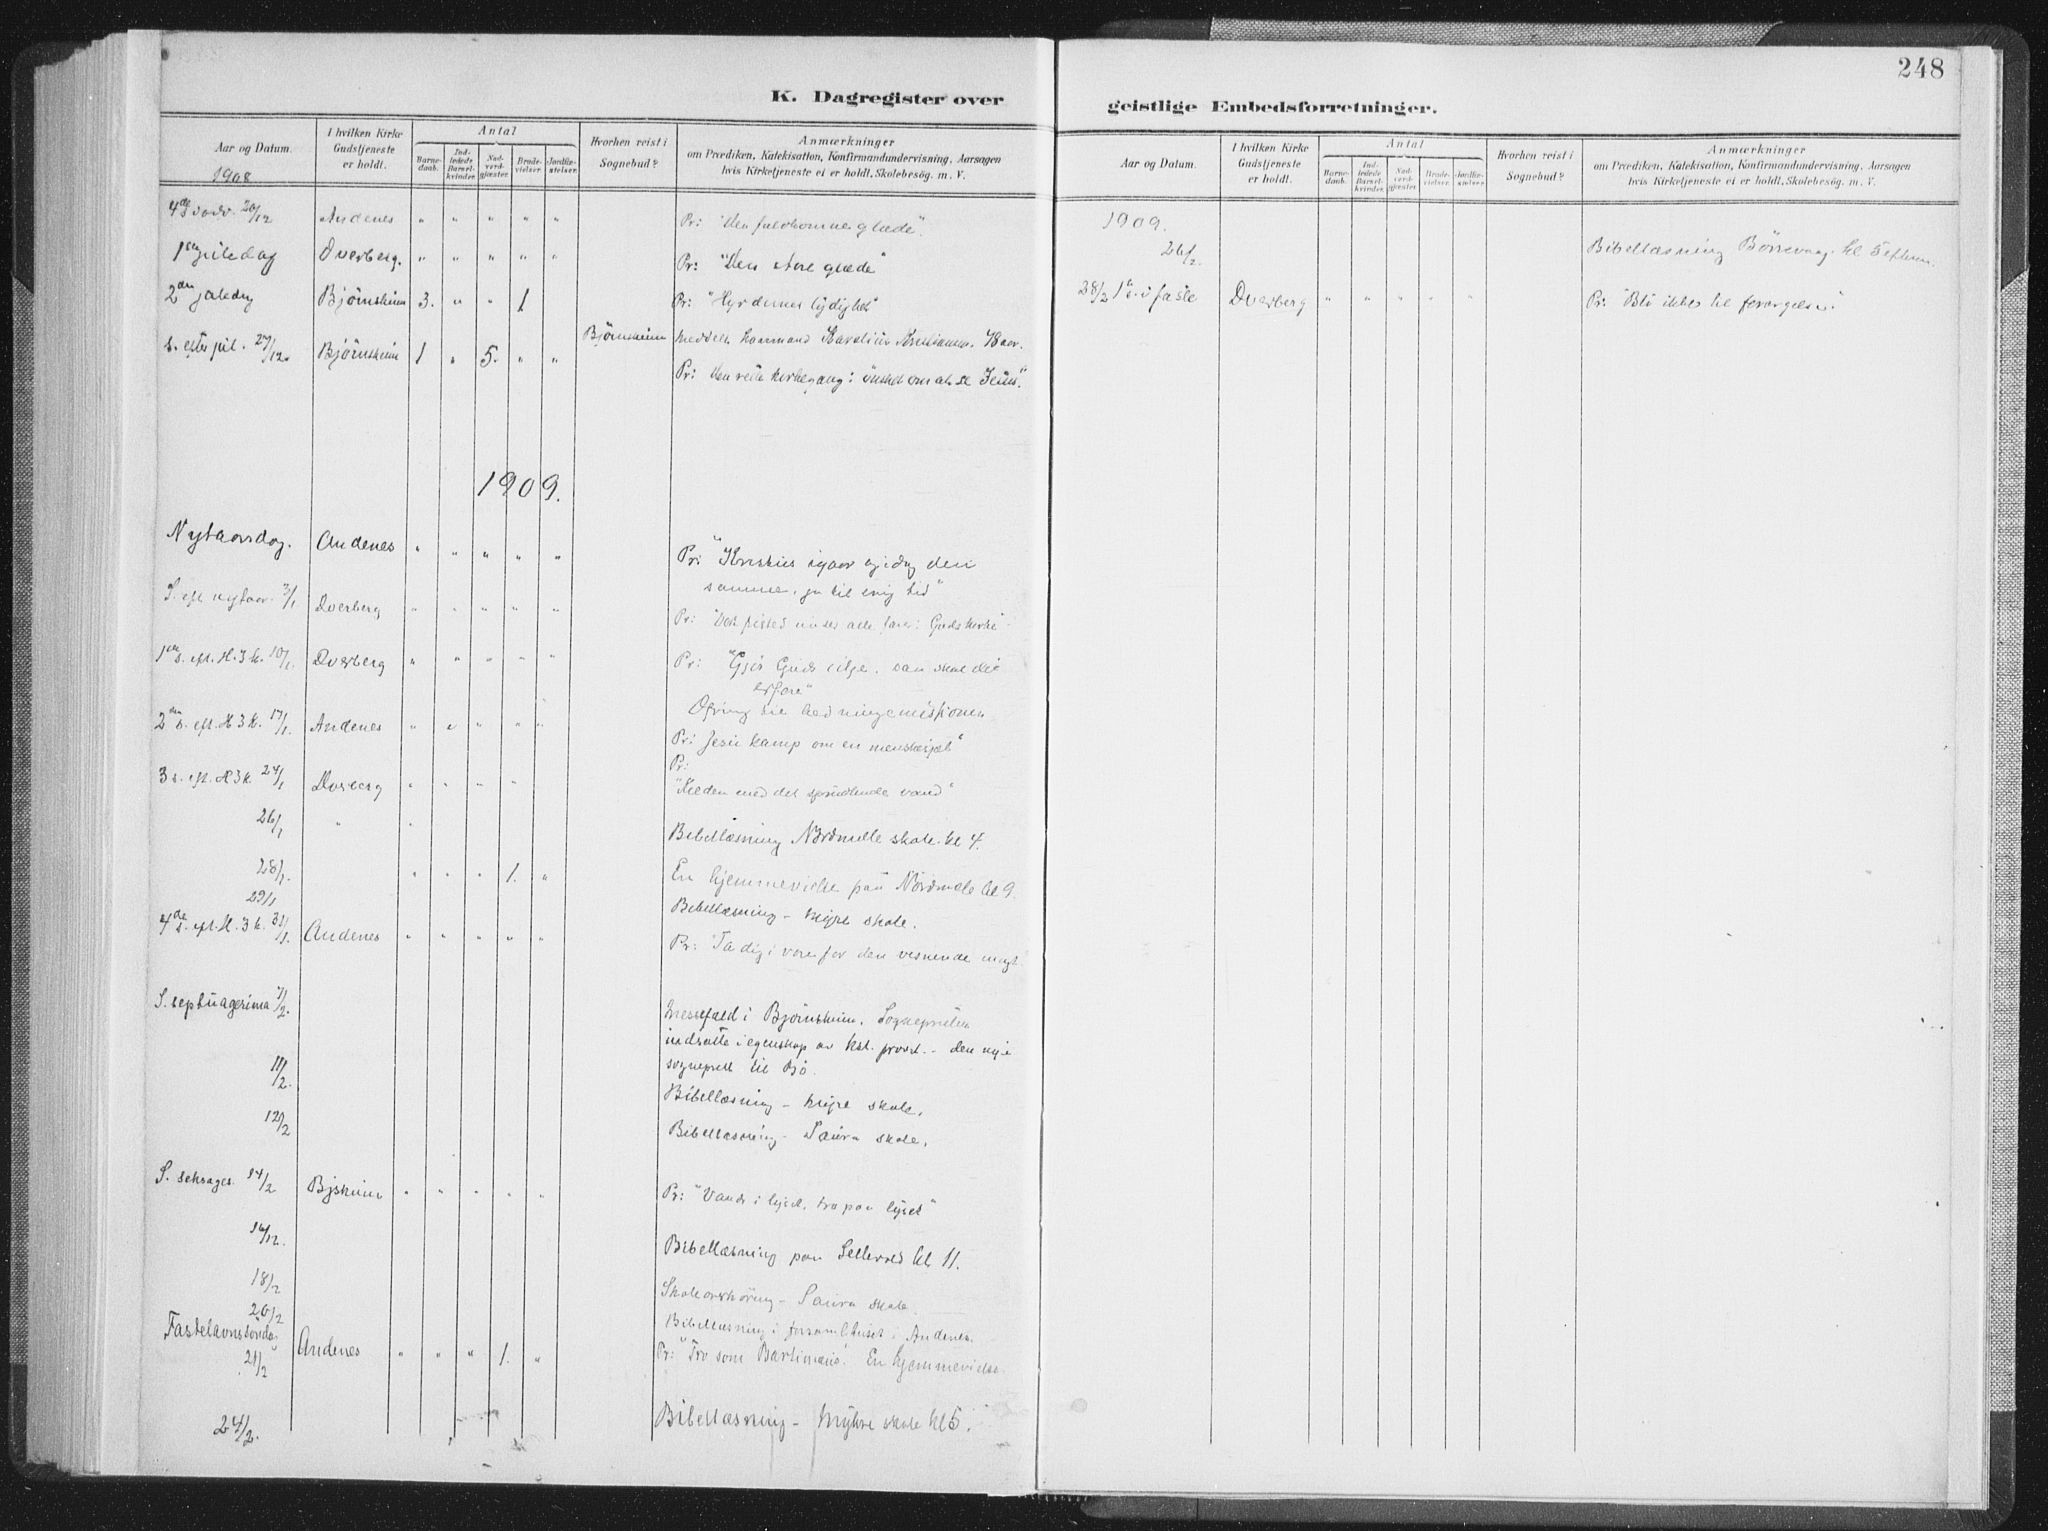 K. Dagregister over
Aar og Datum.
I hvilken Kirke Gudstjeneste er holdt.
Antal
Barnedaab.
Indledede Barselkvinder.
Nadverdgjæster.
Brudevielser.
Jordfæstelser.
Hvorhen reist i Sognebud?
Anmærkninger
om Prædiken, Katekisation, Konfirmandundervisning, Aarsagen
hvis Kirketjeneste ei er holdt, Skolebesög. m. V.
1908
4de s. adv. 20/12 Andenes " " " " " Pr: "Den fuldkomne glæde".
1ste juledag Dverberg. " " " " " Pr: "Den store glæde"
2den juledag Bjørnskinn 3. " " 1 Pr: "Hyrdernes lydighet"
s. efter jul. 27/12. Bjørnskinn 1 " 5. " " Bjørnskinn
Pr: Den rette kirkegang: ønsket om at se Jesus."
1909.
Nytaarsdag. Andenes " " " " " Pr: "Kristus igaar og idag den
samme, ja til evig tid"
S. eft nytaar. 3/1 Dverberg " " " " "
1ste s. eft. H. 3 k. 10/1. Dverberg " " " " " Pr: "Gjør Guds vilje, saa skal du
erfare"
2den s. eft. H 3 k. 17/1. Andenes " " " " " Ofring til hedningemissionen
Pr: Jesu kamp om en menskesjæl"
3 s. eft. H 3 k. 24/1 Dverberg " " " " Pr:
"Kilden med det sprudlende vand"
26/1 " " Bibellæsning Nordmelle skole. kl 4.
28/1. " " " 1. " En hjemmevielse paa Nordmele kl 9.
29/1 Bibellæsning – Myre skole.
4de s. eft. H. 3 k. 31/1. Andenes " " " " " Pr: "Ta dig i vare for den
S. septuagesima 7/2. Messefald i Bjørnskinn. Sognepresten
indsatte i egenskap av kst. provst. – den nye
sogneprest til Bø.
11/2. Bibellæsning – Myre skole.
12/2 Bibellæsning – Saura skole.
S. seksages. 14/2 Bjskinn " " " " " Pr: "Vandr i lyset, tro paa lyset"
16/12. Bibellæsning paa kl 11.
18/2 Skole – Saura skole.
20/2 Bibellæsning i forsamlhuset i Andenes.
Fastelavnssøndag
21/2 Andenes " " " 1. " Pr: "Tro som Bartimæus." En hjemmevielse
24/2. Bibellæsning – Myhre skole kl 5.
248
geistlige Embedsforretninger.
Aar og Datum.
I hvilken Kirke Gudstjeneste er holdt.
Antal
Barnedaab.
Indledede Barselkvinder.
Nadverdgjæster.
Brudevielser.
Jordfæstelser.
Hvorhen reist i Sognebud?
Anmærkninger
om Prædiken, Katekisation, Konfirmandundervisning, Aarsagen
hvis Kirketjeneste ei er holdt, Skolebesög. m. V.
1909.
26/2. Bibellæsning Børrevaag. kl 5 efterm.
28/2 1ste s. i faste Dverberg " " " " " Pr: "Bli ikke til forargelse."